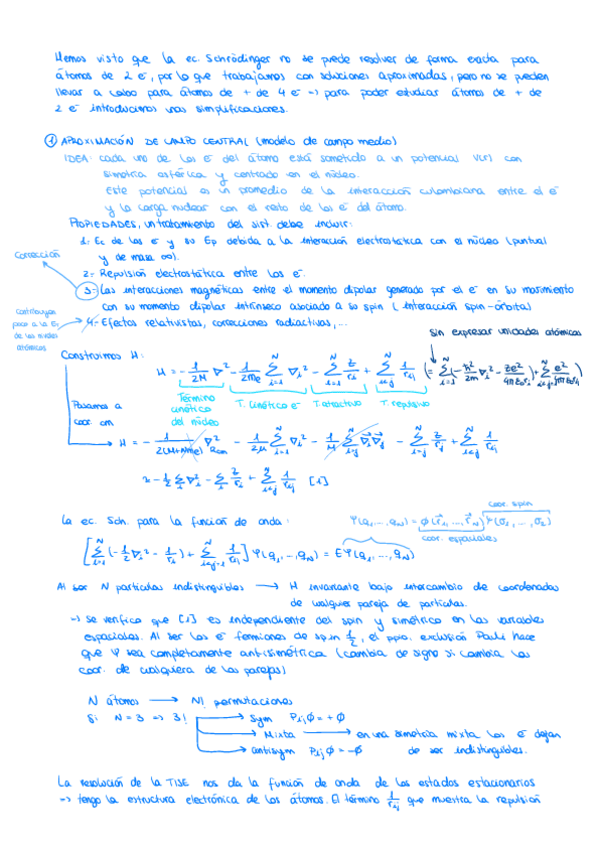 Hemos visto que la ec. Schrödinger no se puede resolver de forma exacta para
átomos de 2 e⁻, por lo que trabajamos con soluciones aproximadas, pero no se pueden
llevar a cabo para átomos de + de 4 e⁻ → para poder estudiar átomos de + de
2 e⁻ introducimos unas simplificaciones.
① APROXIMACIÓN DE CAMPO CENTRAL (modelo de campo medio)
IDEA: cada uno de los e⁻ del átomo está sometido a un potencial V(r) con
simetría esférica y centrado en el núcleo.
Este potencial es un promedio de la interacción culombiana entre el e⁻
y la carga nuclear con el resto de los e⁻ del átomo.
PROPIEDADES, un tratamiento del sist debe incluir:
1- Ec de los e⁻ y su Ep debida a la interacción electrostática con el núcleo (puntual
y de masa ∞).
corrección
2- Repulsión electrostática entre los e⁻.
3- Las interacciones magnéticas entre el momento dipolar generado por el e⁻ en su movimiento
con su momento dipolar intrínseco asociado a su spin (interacción spin-órbita)
contribuyen
poco a la E
de los niveles
atómicos
4- Efectos relativistas, correcciones radiactivas, ...
sin expresar unidades atómicas
Construimos H:
H = - 1/2M ∇² - 1/2me Σ_{i=1}^{N} ∇i² - Σ_{i=1}^{N} z/ri + Σ_{i<j}^{N} 1/rij (= Σ_{i=1}^{N} (-ħ²/2m ∇i² - ze²/4πε₀ri) + Σ_{i<j}^{N} e²/4πε₀rij)
Término
cinético
del núcleo
T. cinético e⁻
T. atractivo
T. repulsivo
Pasamos a
coor. cm
H = - 1/2(M+Nme) ∇²cm - 1/2μ Σ_{i=1}^{N} ∇i² - 1/M Σ_{i>j}^{N} ∇i ∇j - Σ_{i=j}^{N} z/ri + Σ_{i<j}^{N} 1/rij
≈ - 1/2 Σ ∇i² - Σ z/ri + Σ_{i<j}^{N} 1/rij [1]
coor. spin
La ec. Sch. para la función de onda:
Ψ(q₁, ..., qN) = φ(r₁, ..., rN) χ(σ₁, ..., σ₂)
coor. espaciales
[Σ_{i=1}^{N} (-1/2 ∇i² - 1/ri) + Σ_{i<j=1}^{N} 1/rij] Ψ(q₁, ..., qN) = EΨ(q₁, ..., qN)
Al ser N partículas indistinguibles → H invariante bajo intercambio de coordenadas
de cualquier pareja de partículas.
→ Se verifica que [1] es independiente del spin y simétrico en las variables
espaciales. Al ser los e⁻ fermiones de spin 1/2, el ppio. exclusión Pauli hace
que Ψ sea completamente antisimétrica (cambia de signo si cambia las
coor. de cualquiera de las parejas)
N átomos → N! permutaciones
Si N = 3 → 3! → Sym Pijφ = +φ
→ Mixta → en una simetría mixta los e⁻ dejan
→ antisym Pijφ = -φ de ser indistinguibles.
La resolución de la TISE nos da la función de onda de los estados estacionarios
→ tengo la estructura electrónica de los átomos. El término 1/rij que muestra la repulsión